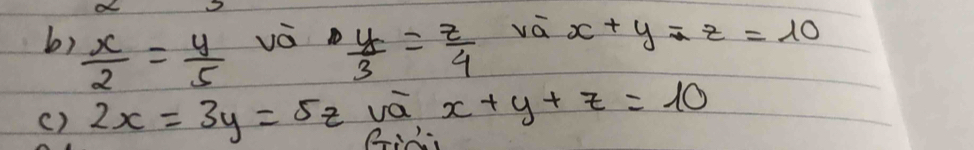 b) x/2 = y/5 và y/3 = z/4 và x + y - z = 10
c) 2x = 3y = 5z và x + y + z = 10
Giải